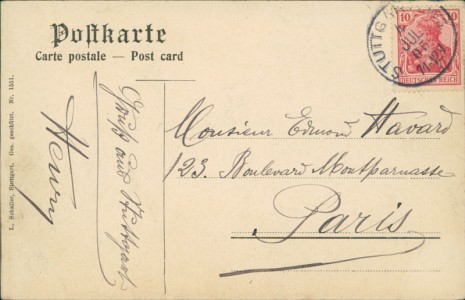 Postkarte
Carte postale — Post card
STUTTG
JUL
10 10
DEUTSCHES REICH
Monsieur Edmond Havard
123. Boulevard Montparnasse
Paris
Gruß aus Stuttgart
Henry
L. Schaller, Stuttgart, Ges. geschützt. Nr. 1551.